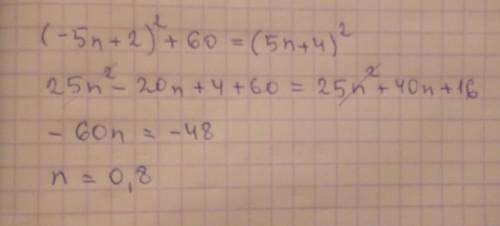 (-5n+2)² + 60 = (5n+4)²
25n² - 20n + 4 + 60 = 25n² + 40n + 16
- 60n = -48
n = 0,8